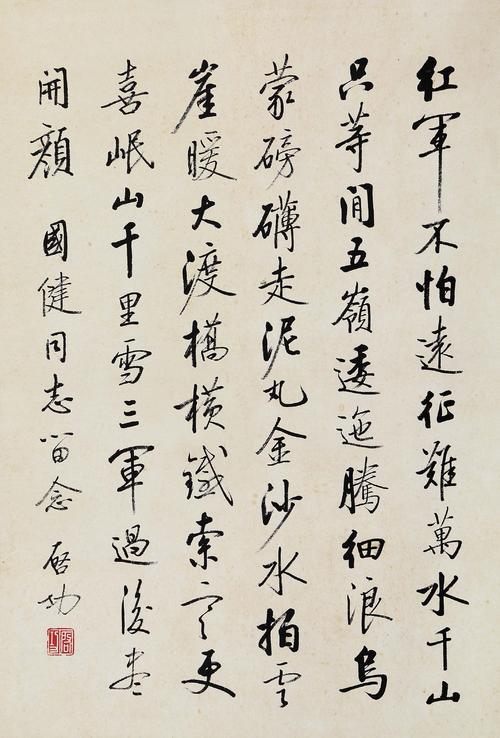 紅軍不怕遠征難萬水千山
只等閒五嶺逶迤騰細浪烏
蒙磅礴走泥丸金沙水拍雲
崖暖大渡橋橫鐵索寒更
喜岷山千里雪三軍過後盡
開顏 國健同志留念 啓功